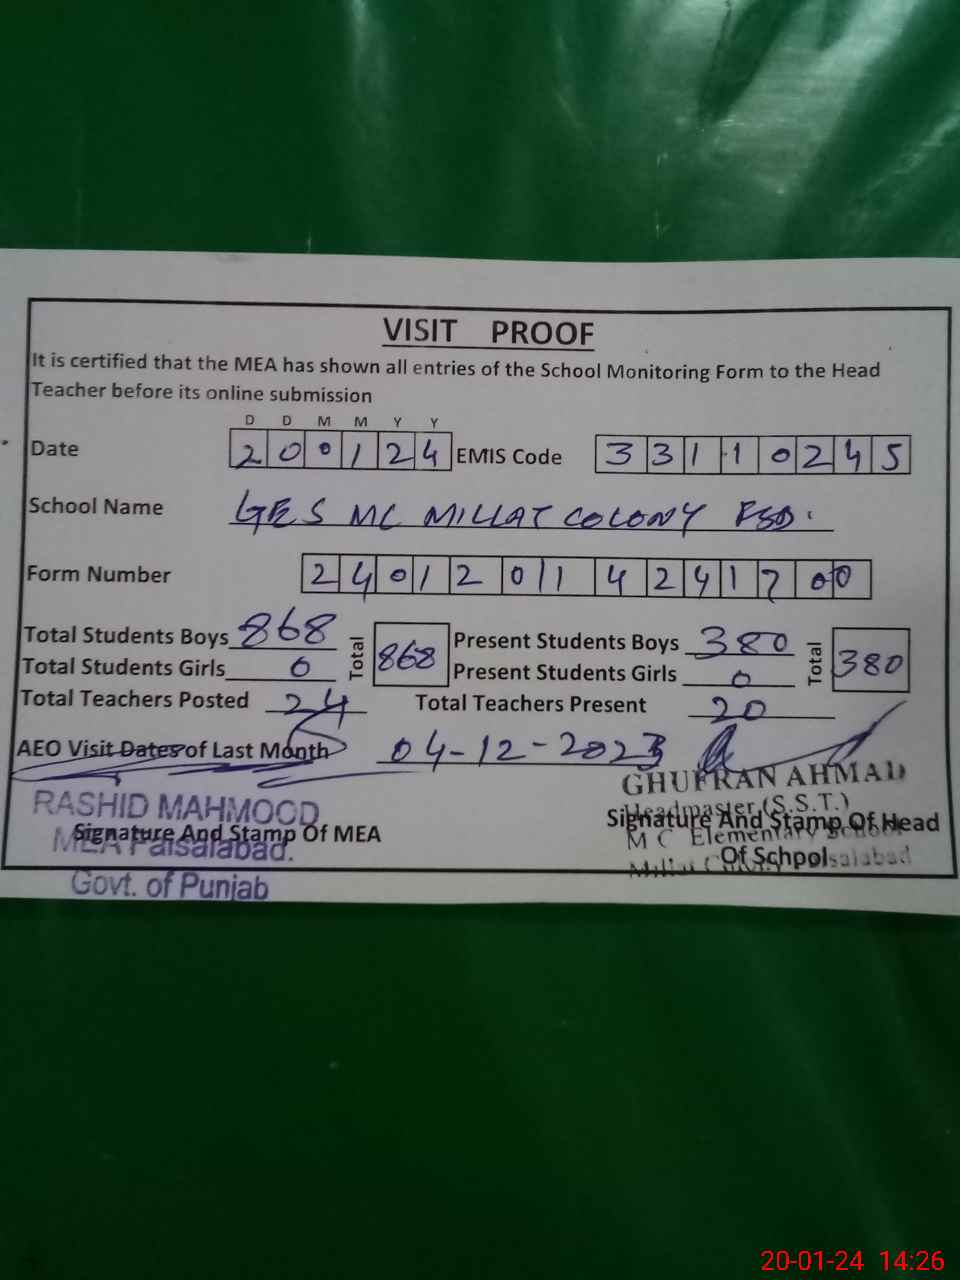 VISIT PROOF
It is certified that the MEA has shown all entries of the School Monitoring Form to the Head
Teacher before its online submission
D D M M Y Y
Date 200124 EMIS Code 33110245
School Name GES MC MILLAT COLONY FSD.
Form Number 240120114241700
Total Students Boys 868 Total 868 Present Students Boys 380 Total 380
Total Students Girls 0 Present Students Girls 0
Total Teachers Posted 24 Total Teachers Present 20
AEO Visit Dates of Last Month 04-12-2023
RASHID MAHMOOD
MEA Faisalabad.
Govt. of Punjab
Signature And Stamp Of MEA
GHUFRAN AHMAD
Headmaster (S.S.T.)
M C Elementary School
Millat Colony Faisalabad
Signature And Stamp Of Head
Of School
20-01-24 14:26